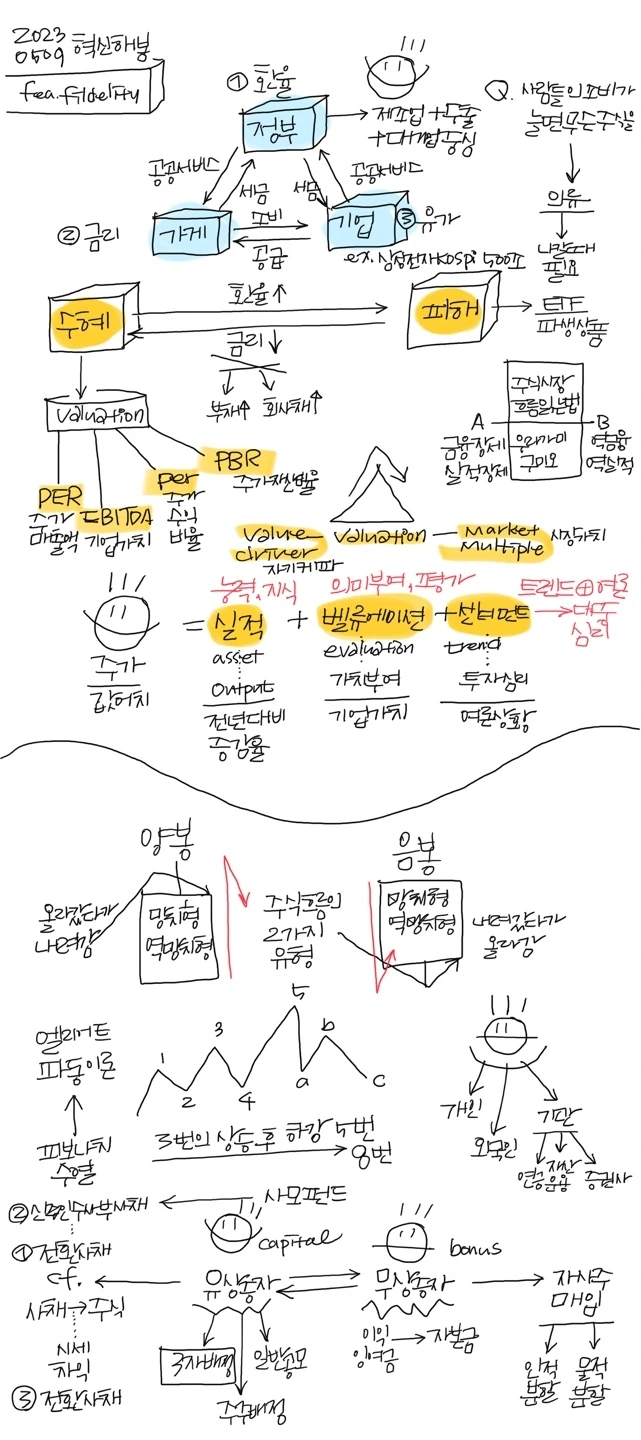 2023
0509 혁신해봉
fea.fidelity
① 환율
정부
제조업+수출
+대기업중심
Q. 사람들의 소비가
늘면 무슨 주식을
의류
나갈때
필요
공공서비스
세금
세금
공공서비스
② 금리
가계
소비
공급
기업
③ 유가
ex. 삼성전자 kospi 500조
수혜
환율↑
금리↓
부채↑
회사채↑
피해
ETF
파생상품
Valuation
PER
주가
매출액
EBITDA
기업가치
per
주가
수익
비율
PBR
주가자산비율
주식시장
흐름읽는법
A
B
금융장세
실적장세
우라가미
구미오
역금융
역실적
Value
driver
valuation
Market
Multiple
시장가치
능력, 지식
의미부여, 평가
트렌드⊕여론
주가
값어치
=
실적
+
벨류에이션
+
센터멘트
→대중
심리
asset
output
전년대비
증감율
evaluation
가치부여
기업가치
trend
투자심리
여론상황
양봉
올라갔다가
내려감
망치형
역망치형
주식흐름의
2가지
유형
음봉
망치형
역망치형
내려갔다가
올라감
엘리어트
파동이론
피보나치
수열
1
2
3
4
5
a
b
c
3번의 상승후 하강 5번
8번
개인
외국인
기관
연금
자산
운용
증권사
② 신주인수부사채
사모펀드
① 전환사채
cf.
사채→주식
시세
차익
③ 전환사채
capital
유상증자
3자배정
주주배정
일반공모
bonus
무상증자
이익
잉여금
자본금
자사주
매입
인적
분할
물적
분할